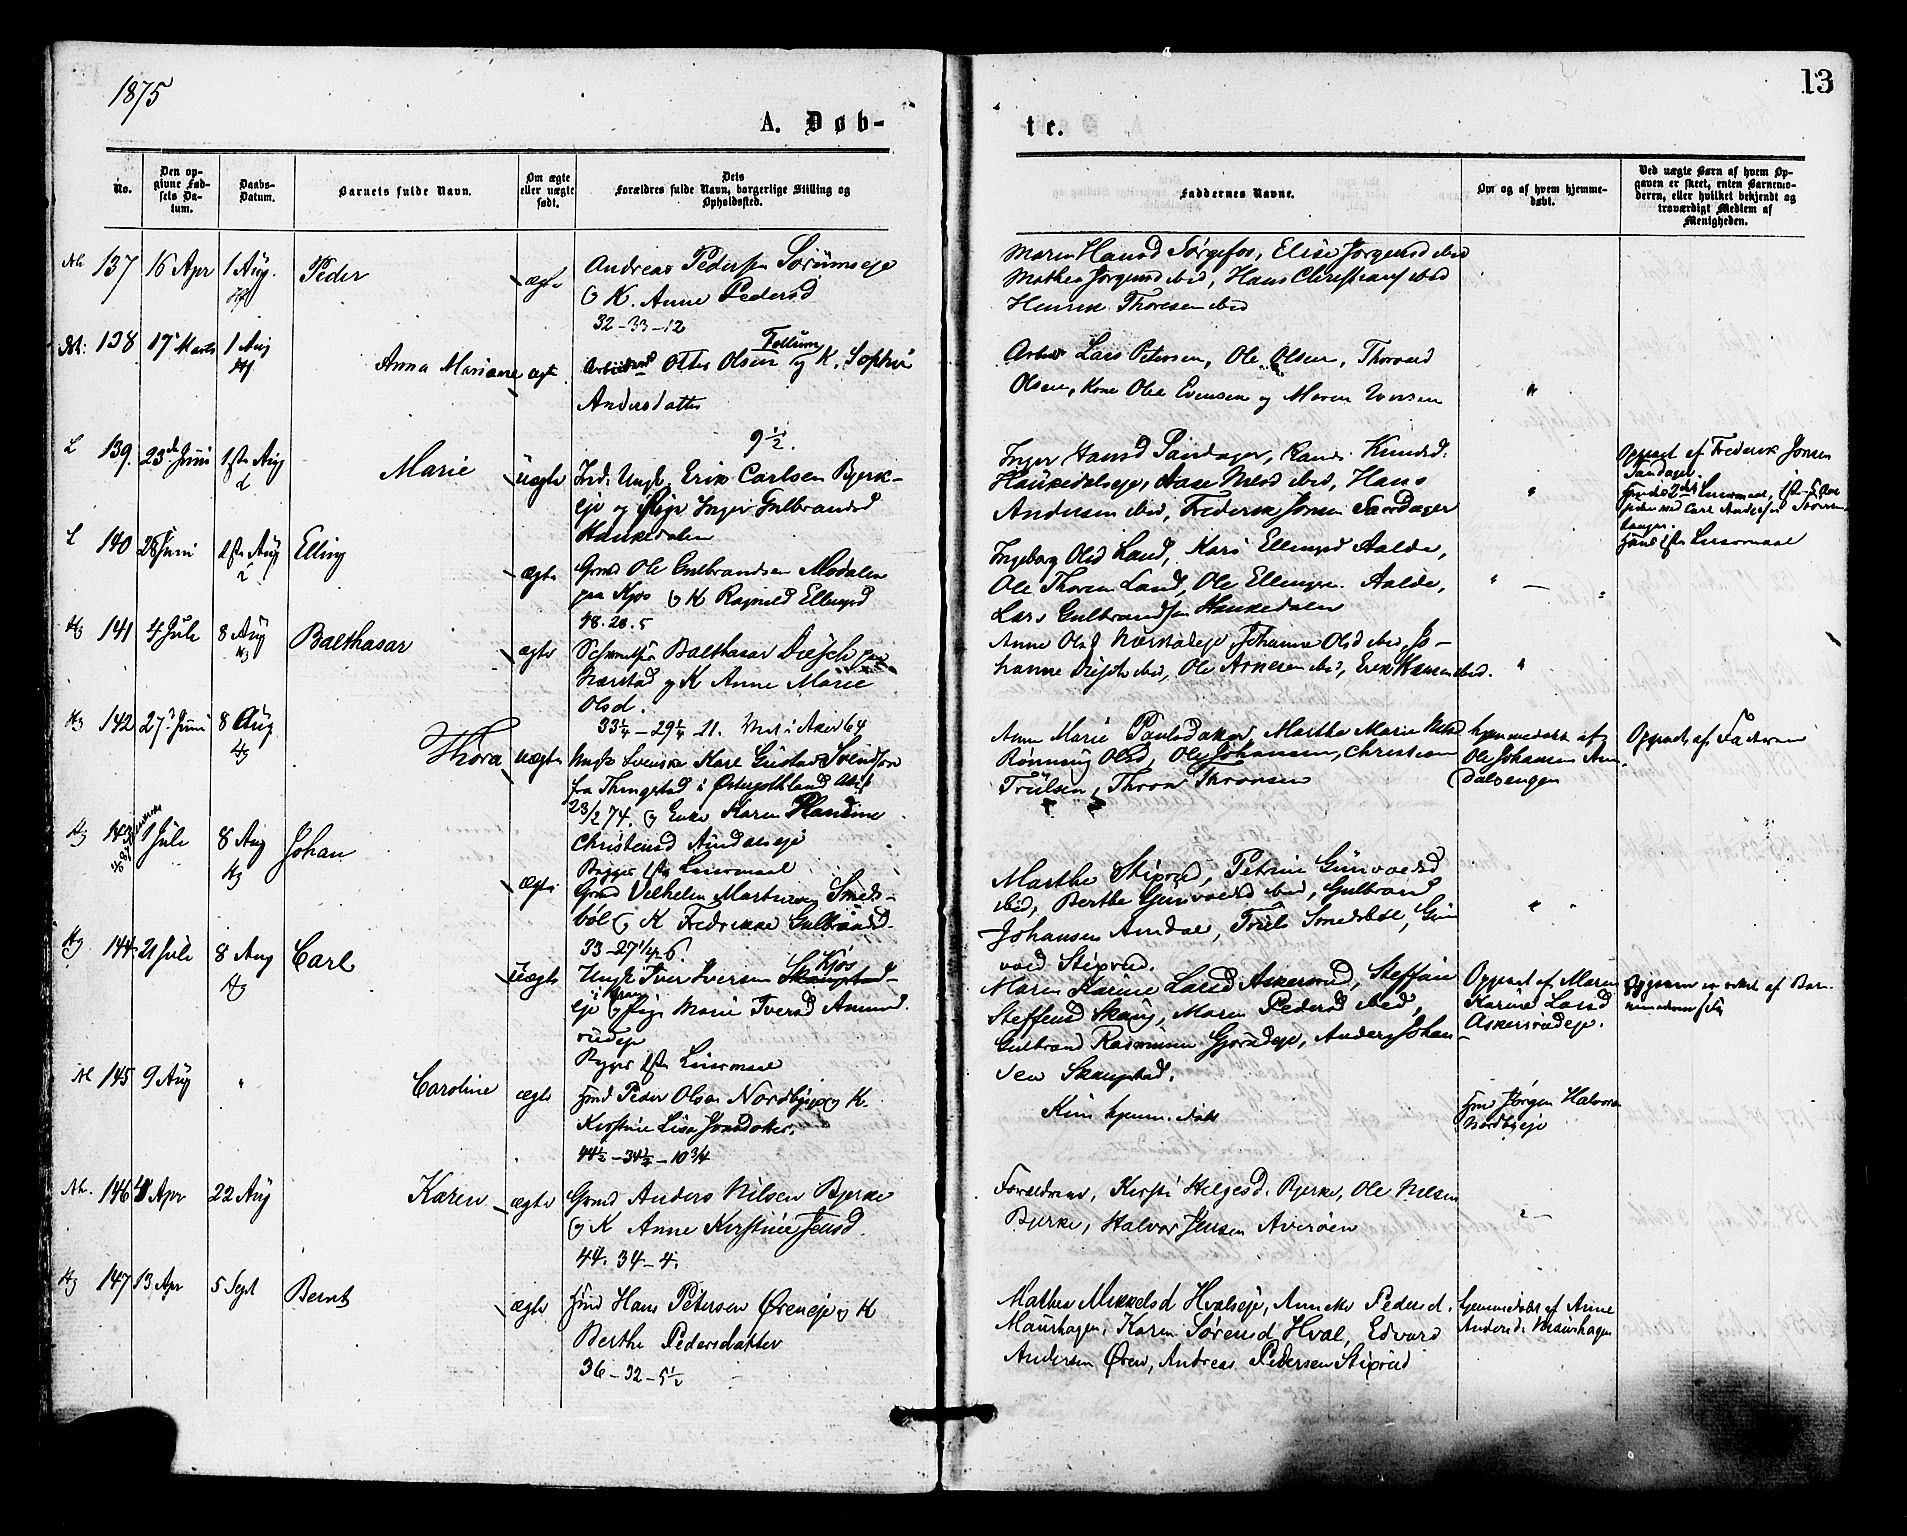 1875
13
A. Døb-
te.
No.
Den op-
givne Fød-
sels Da-
tum.
Daabs-
Datum.
Barnets fulde Navn.
Om ægte
eller uægte
født.
Dets
Forældres fulde Navn, borgerlige Stilling og
Opholdssted.
Faddernes Navne.
Om og af hvem hjemme-
døbt.
Ved uægte Børn af hvem Op-
gaven er skeet, enten Barnemo-
deren, eller hvilket bekjendt og
troværdigt Medlem af
Menigheden.
137 16 Apr 1 Aug. Peder ægte
Andreas Pedersen Sørumseje
og K. Anne Pedersd
32-33-12
Maren Hansd Sørgefos, Elise Jørgensd ibid
Mathea Jørgensd ibid, Hans Christians ibid
Henrik Thoresen ibid
138 17 Marts 1 Aug Anna Mariane ægte
Follum
Otter Olsen og K. Sophie
Andersdatter
Lars Petersen, Ole Olsen, Thorvald
Olsen, Kone Olea Evensen og Maren Iversen
139. 23de Juni 1ste Aug Marie uægte
9½.
Ungk. Erik Carlsen Bjerk-
eje og Pige Inger Gulbrandsd
Haukedalen
Inger Hansd Sandager, Randi Knudsd.
Haukedalseje, Aase Nilsd ibid, Hans
Andersen ibid, Frederik Jonsen Sandager
Opgivet af Frederik Jonsen
Sandager.
Hendes 2det Leiermaal, 1ste
med Carl Andersen
Hans 1ste Leiermaal
140 28 Juni 1ste Aug Elling ægte
Grmd Ole Gulbrandsen Modalen
paa Kjos og K Ragnild Ellingsd
48. 28. 5
Ingeborg Olsd Land, Kari Ellingsd Aalde,
Ole Thoresen Land, Ole Ellingsen Aalde,
Lars Gulbrandsen Haukedalen
141 4 Juli 8 Aug Balthasar ægte
Balthasar Diesch paa
Nærstad og K Anne Marie
Olsd.
33¼-29¼ 11. i Aker 64
Anne Olsd Nærstadeje, Johanne Olsd ibid, Jo-
hanne Diesch ibid, Ole Arnesen ibid, Erik Hansen ibid.
142 27 Juni 8 Aug Thora uægte
Ungk Svenske Karl Gustav Svendsen
fra Thingstad i Østergothland
23/2 74. og Enke Karen Randine
Christensd Aamdalseje
Begges 1ste Leiermaal
Anne Marie Paulsdaker, Marthe Marie Nilsd
Rønnaug Olsd, Ole Johansen, Christian
Trulsen, Thron Thronsen
hjemmedøbt af
Ole Johansen Aam-
dalsengen
Opgivet af Faderen
143 1 Juli 8 Aug Johan ægte
Grmd Vilhelm Martinsen Smeds-
bøl og K Fredrikke Gulbrandsd
33-27¼-6
Marthe Stixrud, Petrine Gunvoldsd
ibid, Berthe Gunvoldsd ibid, Gulbrand
Johansen Amdal, Truls Smedsbøl, Gun
vold Stixrud.
144 21 Juli 8 Aug Carl uægte
Kjos
Ungk Iver Iversen
eje og Pige Marie Iversd Amund
rudeje
Begges 1ste Leiermaal
Maren Karine Larsd Askersrud, Steffine
Steffensd Skaug, Maren Pedersd ibid,
Gulbrand Rasmussen Gjørudeje, Anders Johan
sen Skaugstad.
Opgivet af Maren
Karine Larsd
Askersrudeje.
145 9 Aug " Caroline ægte
Hmd Peder Olsen Nordbyeje og K.
Kirstine Lisa
44½-34½-10¾
Kun hjem. døbt
Hmd Jørgen Halvorsen
Nordbyeje
146 Apr 22 Aug Karen ægte
Grmd Anders Nilsen Bjerke
og K Anne Kirstine Jensd
44. 34-4.
Forældrene, Kirsti Helgesd. Bjerke, Ole Nilsen
Bjerke, Halvor Jensen Averøen
147 13 Apr 5 Sept Bernt ægte
Hmd Hans Petersen Øreneje og K
Berthe Pedersdatter
36-32-5½
Mathea Mikkelsd Hvalseje, Annette Pedersd.
Maurhagen, Karen Sørensd Hval, Edvard
Andersen Øren, Andreas Pedersen Stixrud
hjemmedøbt af Anne
Andersd. Maurhagen